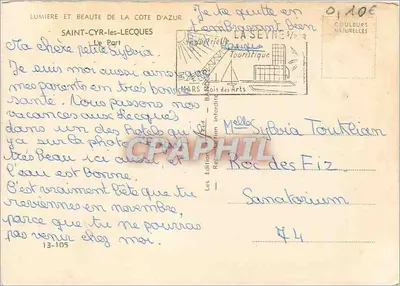 LUMIERE ET BEAUTE DE LA COTE D'AZUR
SAINT-CYR-les-LECQUES
Le Port
Ma chère petite Sylvia.
Je suis moi aussi ainsi que
mes parents en très bonne
santé. Nous passons nos
vacances aux Lecques
dans un des hotels qu'il
y a sur la photo. Il fait
très beau ici au
l'eau est bonne.
C'est vraiment bête que tu
reviennes en novembre,
parce que tu ne pourras
pas venir chez moi.
13-105
Je te quitte en
t'embrassant bien
LA SEYNE S/MER
Touristique
MARS des Arts
0,10€
COULEURS
NATURELLES
Les Editions
Reproduction interdite
CPARAMA.COM
Melle Sylvia Toukeian
Roc des Fiz
Sanatorium
74